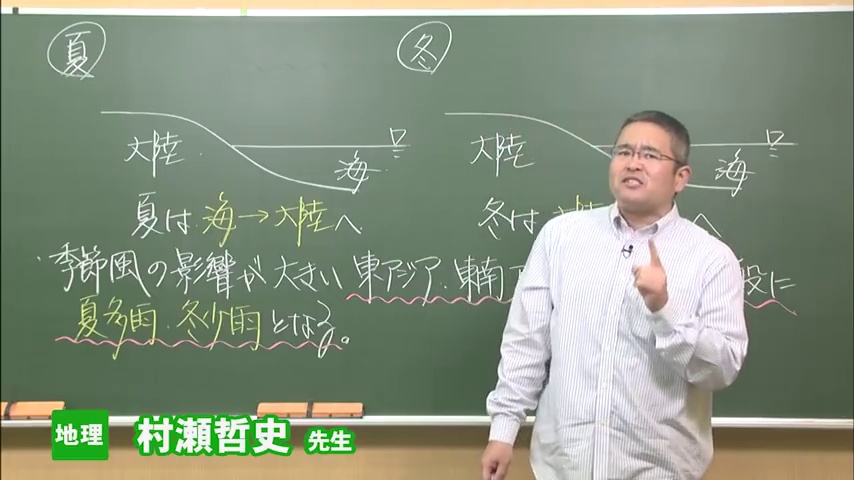 夏
冬
大陸
海
大陸
海
夏は 海→大陸へ
冬は 大陸 へ
季節風の影響が大きい 東アジア・東南 般に
夏多雨・冬少雨となる。
地理 村瀬哲史 先生